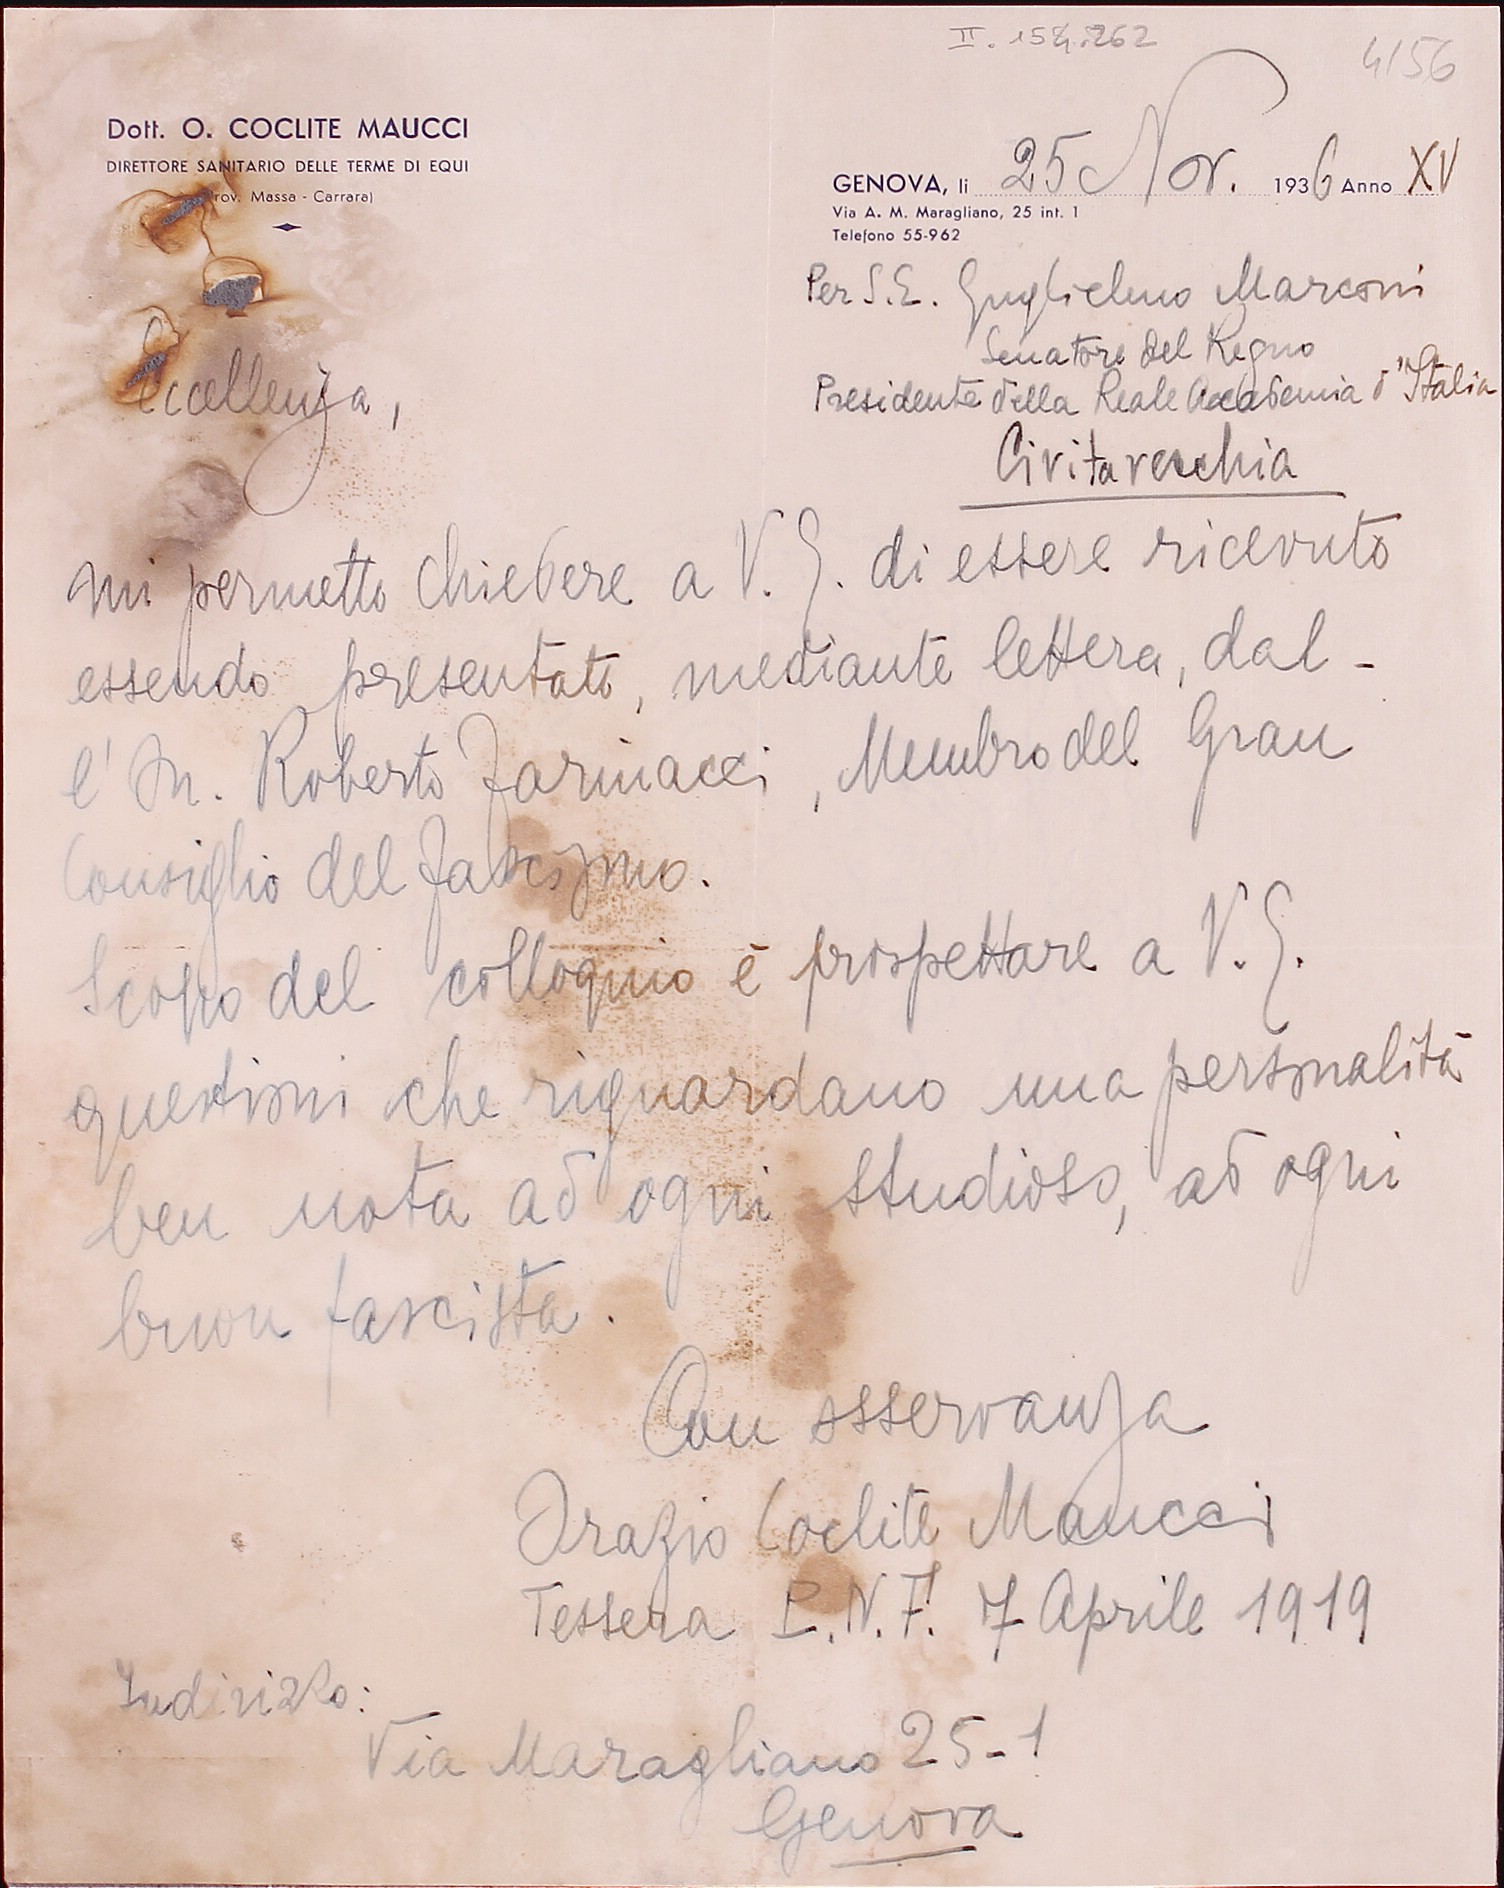 II. 154.262
4156
Dott. O. COCLITE MAUCCI
DIRETTORE SANITARIO DELLE TERME DI EQUI
rov. Massa - Carrara)
GENOVA, li 25 Nov. 1936 Anno XV
Via A. M. Maragliano, 25 int. 1
Telefono 55-962
Per S.E. Guglielmo Marconi
Senatore del Regno
Presidente della Reale Accademia d'Italia
Civitavecchia
Eccellenza,
mi permetto chiedere a V. E. di essere ricevuto
essendo presentato, mediante lettera, dal-
l'On. Roberto Farinacci, Membro del Gran
Consiglio del Fascismo.
Scopo del colloquio è prospettare a V. E.
questioni che riguardano una personalità
ben nota ad ogni studioso, ad ogni
buon fascista.
Con osservanza
Orazio Coclite Maucci
Tessera P.N.F. 7 Aprile 1919
Indirizzo:
Via Maragliano 25-1
Genova